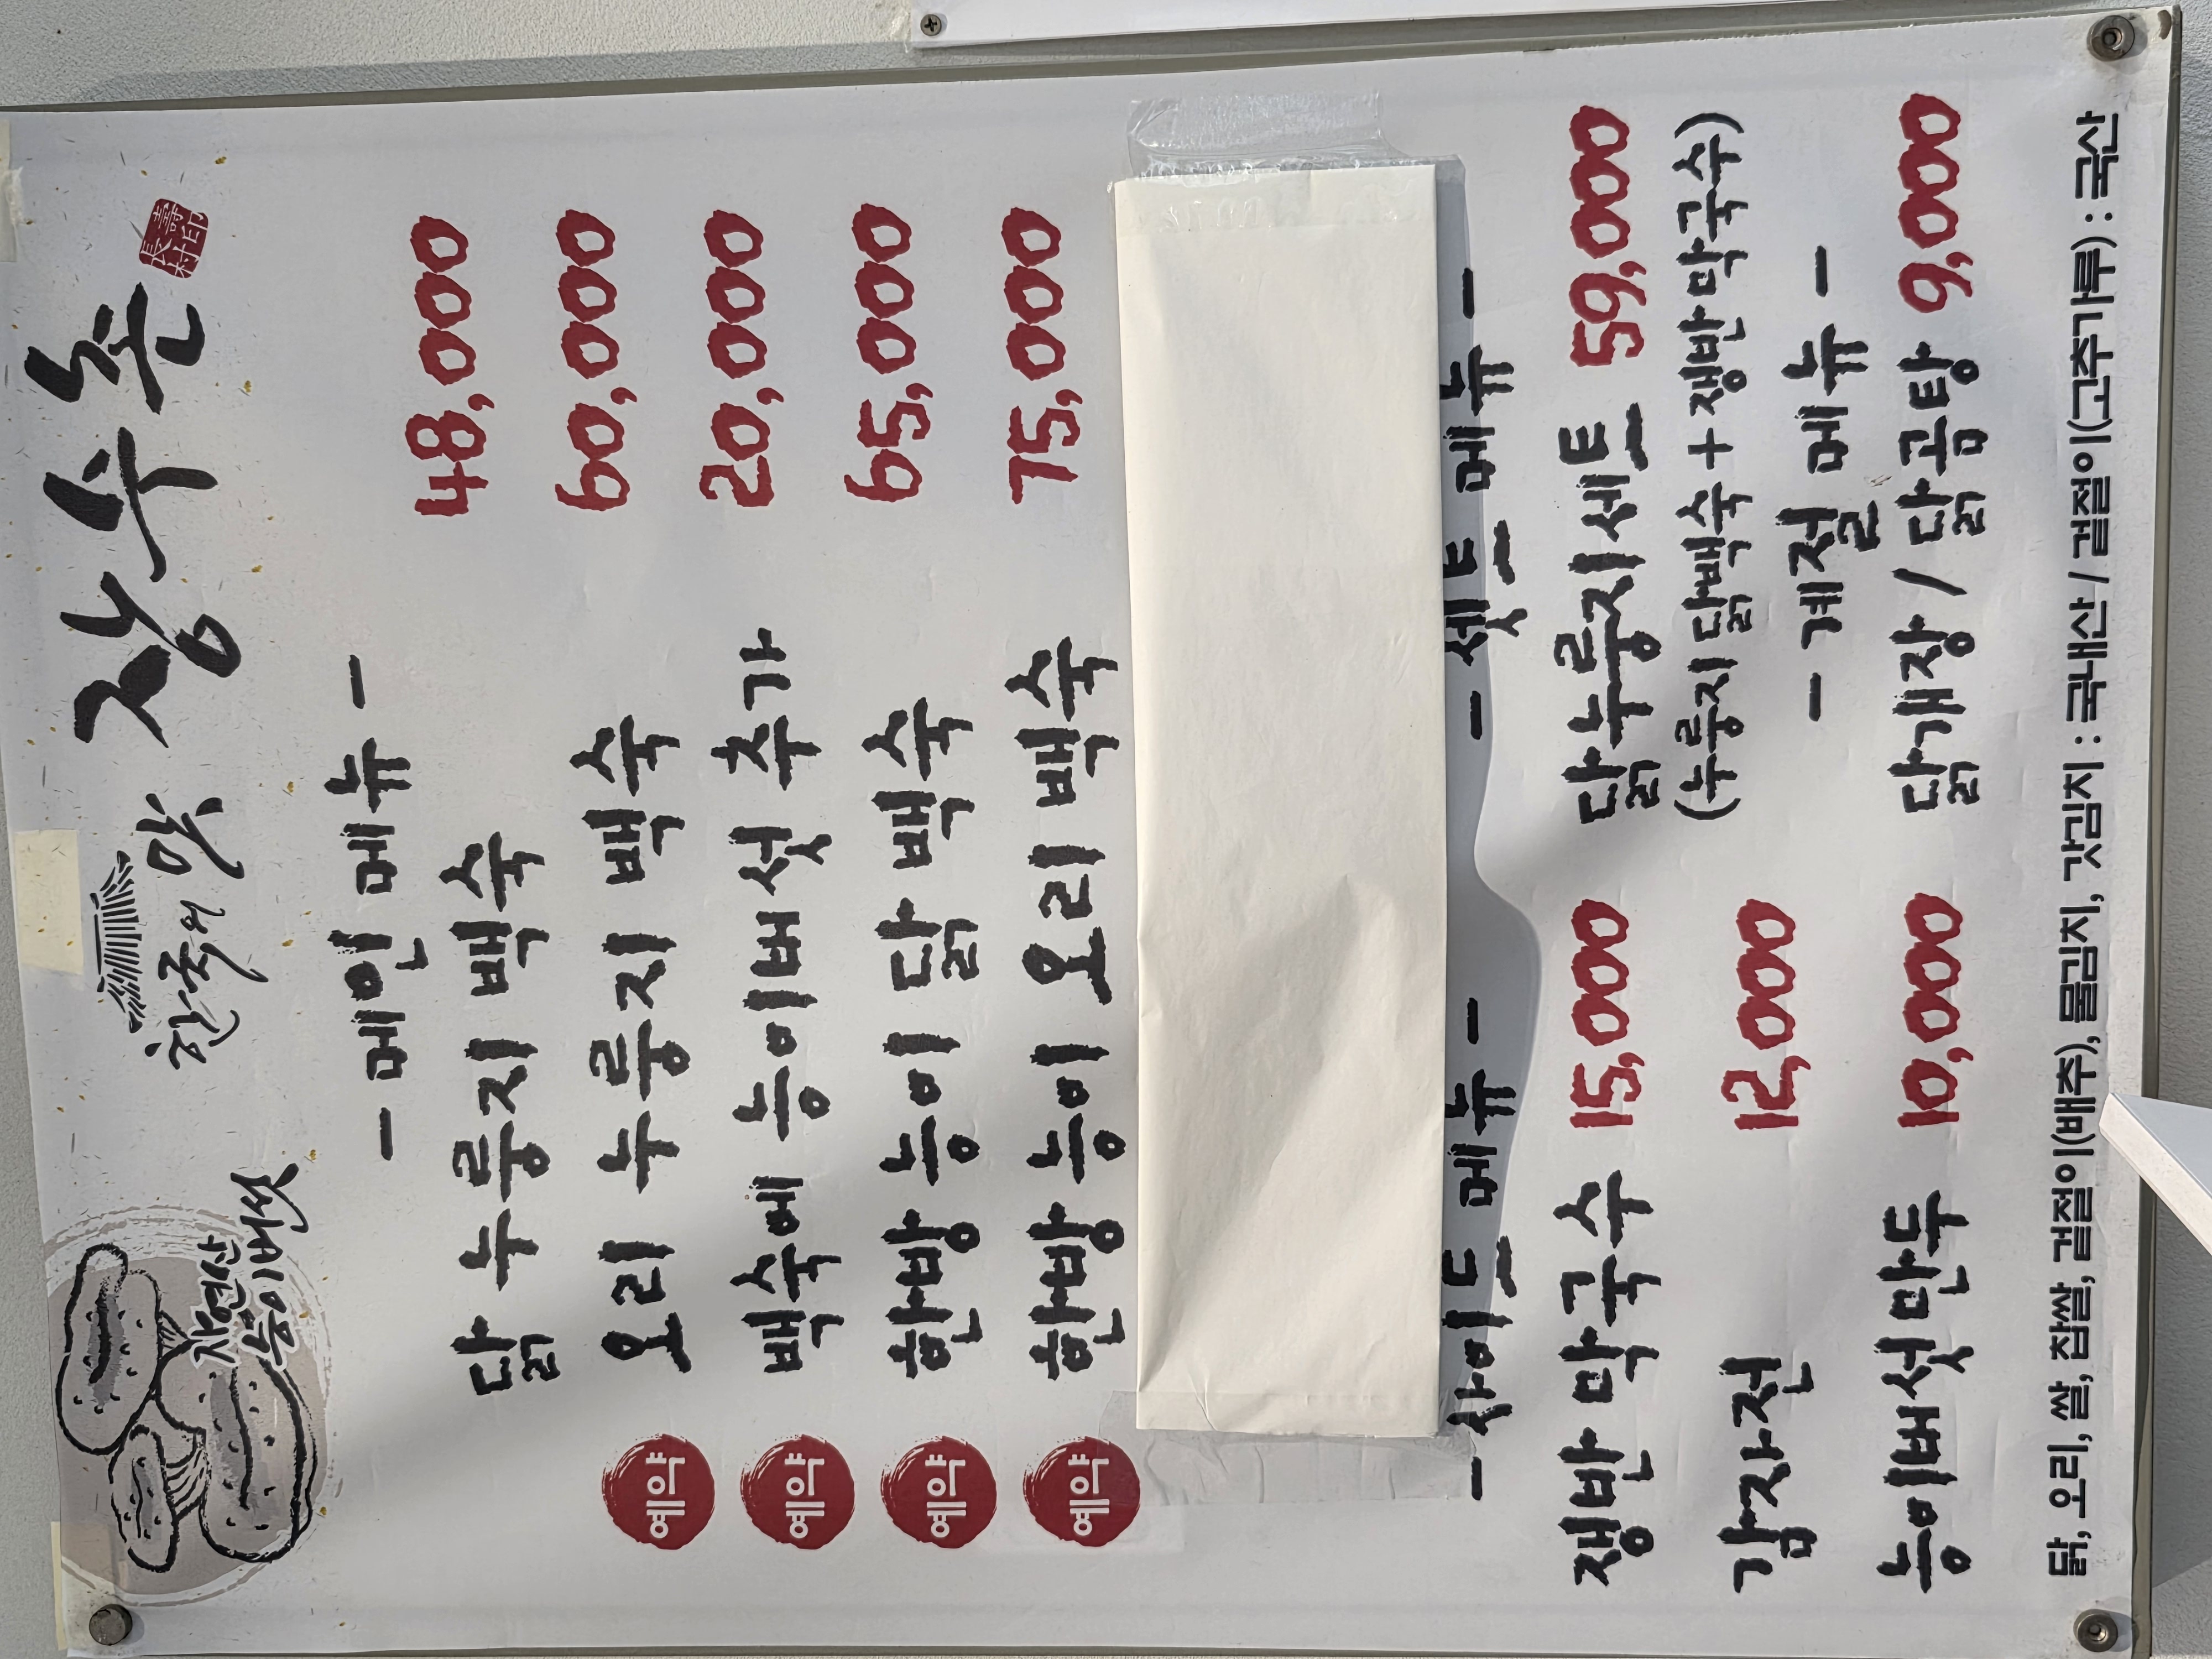 자연산
능이버섯
한국의 맛 장수촌
長壽
村印
- 메인 메뉴 -
닭 누룽지 백숙 48,000
예약 오리 누룽지 백숙 60,000
예약 백숙에 능이버섯 추가 20,000
예약 한방 능이 닭 백숙 65,000
예약 한방 능이 오리 백숙 75,000
- 사이드 메뉴 -
쟁반 막국수 15,000
감자전 12,000
능이버섯만두 10,000
- 셋트 메뉴 -
닭누룽지세트 59,000
(누룽지 닭백숙 + 쟁반 막국수)
- 계절 메뉴 -
닭개장 / 닭곰탕 9,000
닭, 오리, 쌀, 찹쌀, 겉절이(배추), 물김치, 갓김치 : 국내산 / 겉절이(고추가루) : 국산